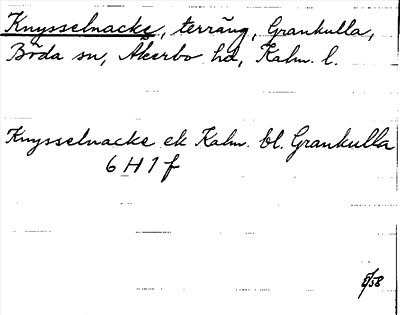 Knysselnacke, terräng, Grankulla,
Böda sn, Åkerbo hd, Kalm. l.
Knysselnacke ek Kalm. bl. Grankulla
6 H 1 f
/58